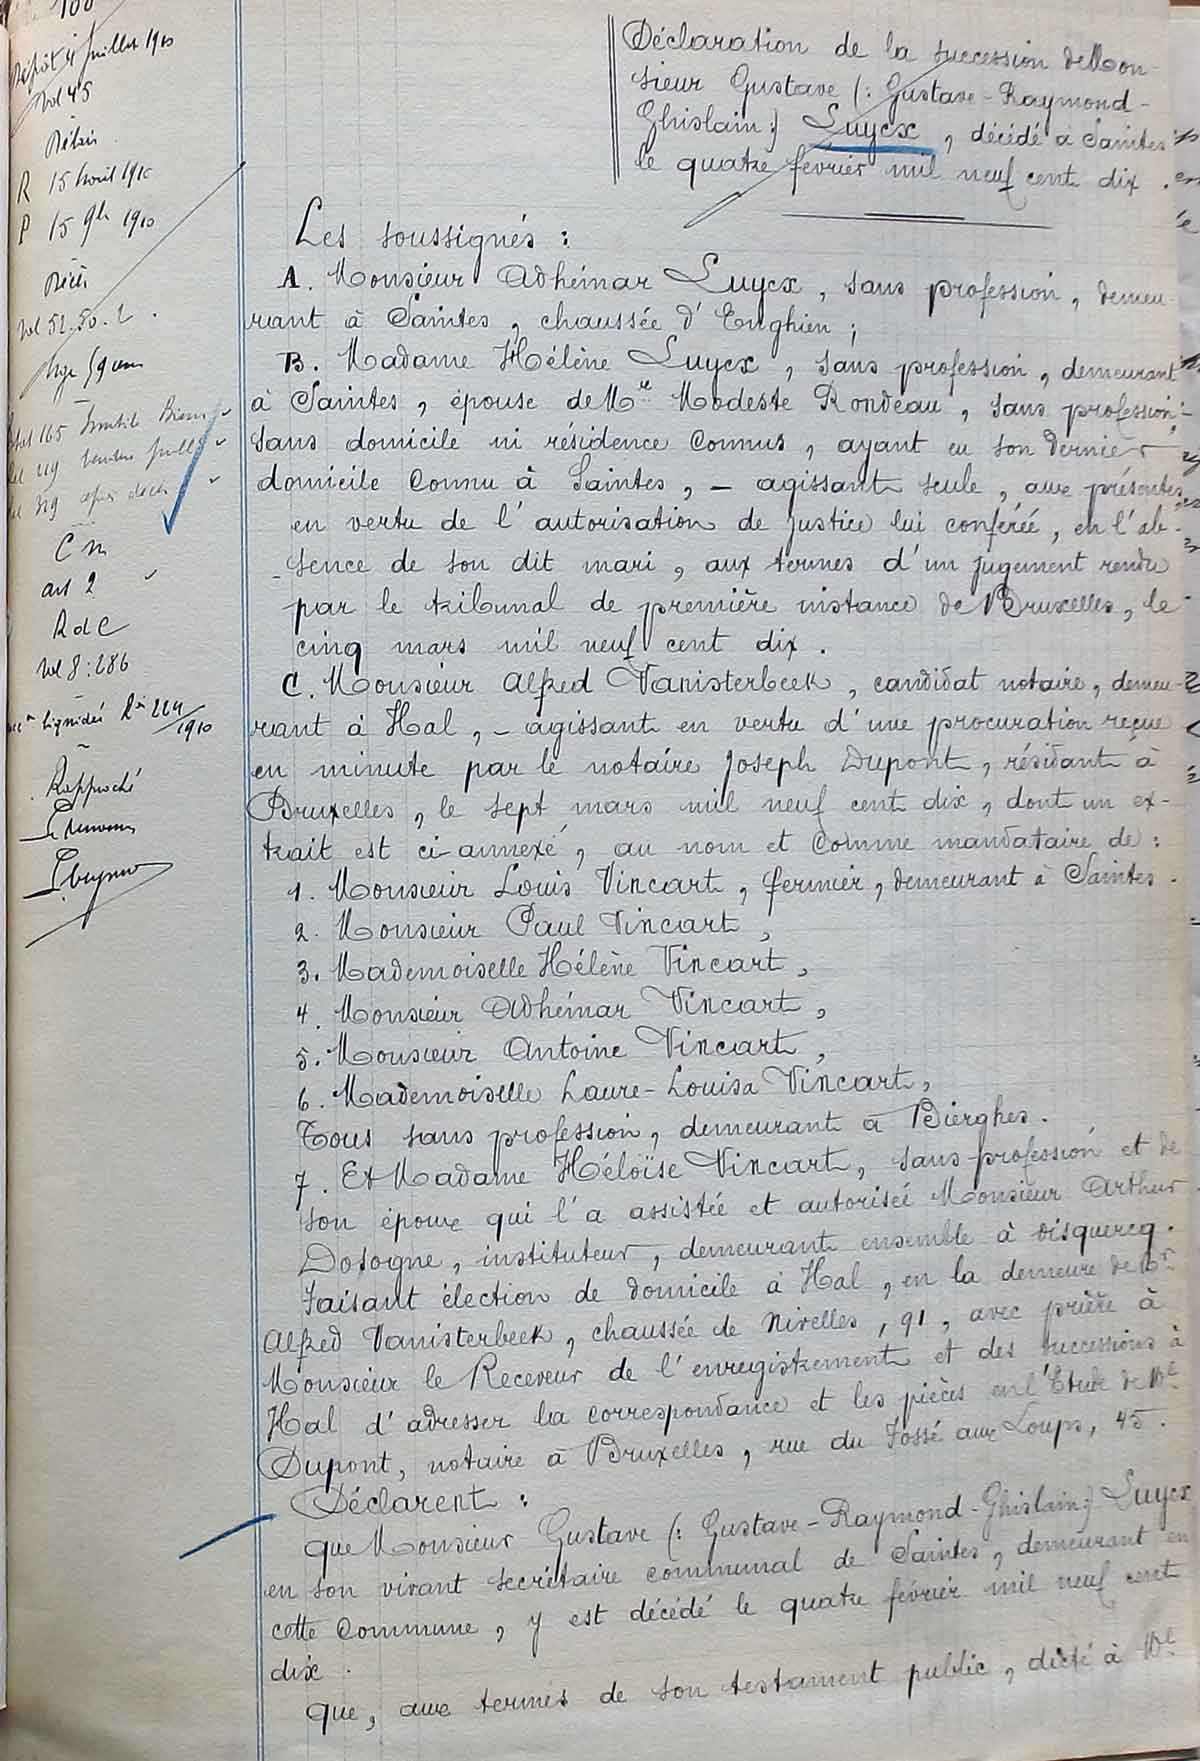 100
Dépôt 4 juillet 1910
Vol 45
Délais
R 15 Avril 1910
P 15 9bre 1910
vol 52.50.2.
165
219
319 après décès
Cn
art 2
RdC
vol 8:286
liquidés 224/1910
Rapproché
Déclaration de la succession de Mon-
sieur Gustave (: Gustave-Raymond-
Ghislain :) Luycx, décédé à Saintes
le quatre février mil neuf cent dix.
Les soussignés :
A. Monsieur Adhémar Luycx, sans profession, demeu-
rant à Saintes, chaussée d'Enghien ;
B. Madame Hélène Luycx, sans profession, demeurant
à Saintes, épouse de Mr Modeste Rondeau, sans profession,
sans domicile ni résidence connus, ayant eu son dernier
domicile connu à Saintes, - agissant seule, aux présentes,
en vertu de l'autorisation de justice lui conférée, en l'ab-
sence de son dit mari, aux termes d'un jugement rendu
par le tribunal de première instance de Bruxelles, le
cinq mars mil neuf cent dix.
C. Monsieur Alfred Vanisterbeek, candidat notaire, demeu-
rant à Hal, - agissant en vertu d'une procuration reçue
en minute par le notaire Joseph Dupont, résidant à
Bruxelles, le sept mars mil neuf cent dix, dont un ex-
trait est ci-annexé, au nom et comme mandataire de :
1. Monsieur Louis Vincart, fermier, demeurant à Saintes.
2. Monsieur Paul Vincart,
3. Mademoiselle Hélène Vincart,
4. Monsieur Adhémar Vincart,
5. Monsieur Antoine Vincart,
6. Mademoiselle Laure-Louisa Vincart,
Tous sans profession, demeurant à Bierghes.
7. Et Madame Héloïse Vincart, sans profession et de
son époux qui l'a assistée et autorisée Monsieur Arthur
Dosogne, instituteur, demeurant ensemble à Oisquercq.
Faisant élection de domicile à Hal, en la demeure de Mr
Alfred Vanisterbeek, chaussée de Nivelles, 91, avec prière à
Monsieur le Receveur de l'enregistrement et des successions à
Hal d'adresser la correspondance et les pièces en l'Etude de Me
Dupont, notaire à Bruxelles, rue du Fossé aux Loups, 45.
Déclarent :
que Monsieur Gustave (: Gustave-Raymond-Ghislain :) Luycx
en son vivant secrétaire communal de Saintes, demeurant en
cette commune, y est décédé le quatre février mil neuf cent
dix.
que, aux termes de son testament public, dicté à Me